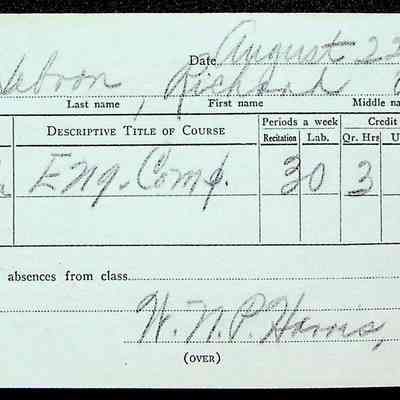 Date August 22
, Richard
Last name First name Middle na
DESCRIPTIVE TITLE OF COURSE Periods a week Credit
Recitation Lab. Qr. Hrs U
Eng. Comp. 3 0 3
absences from class
W. N. P. Harris,
(OVER)